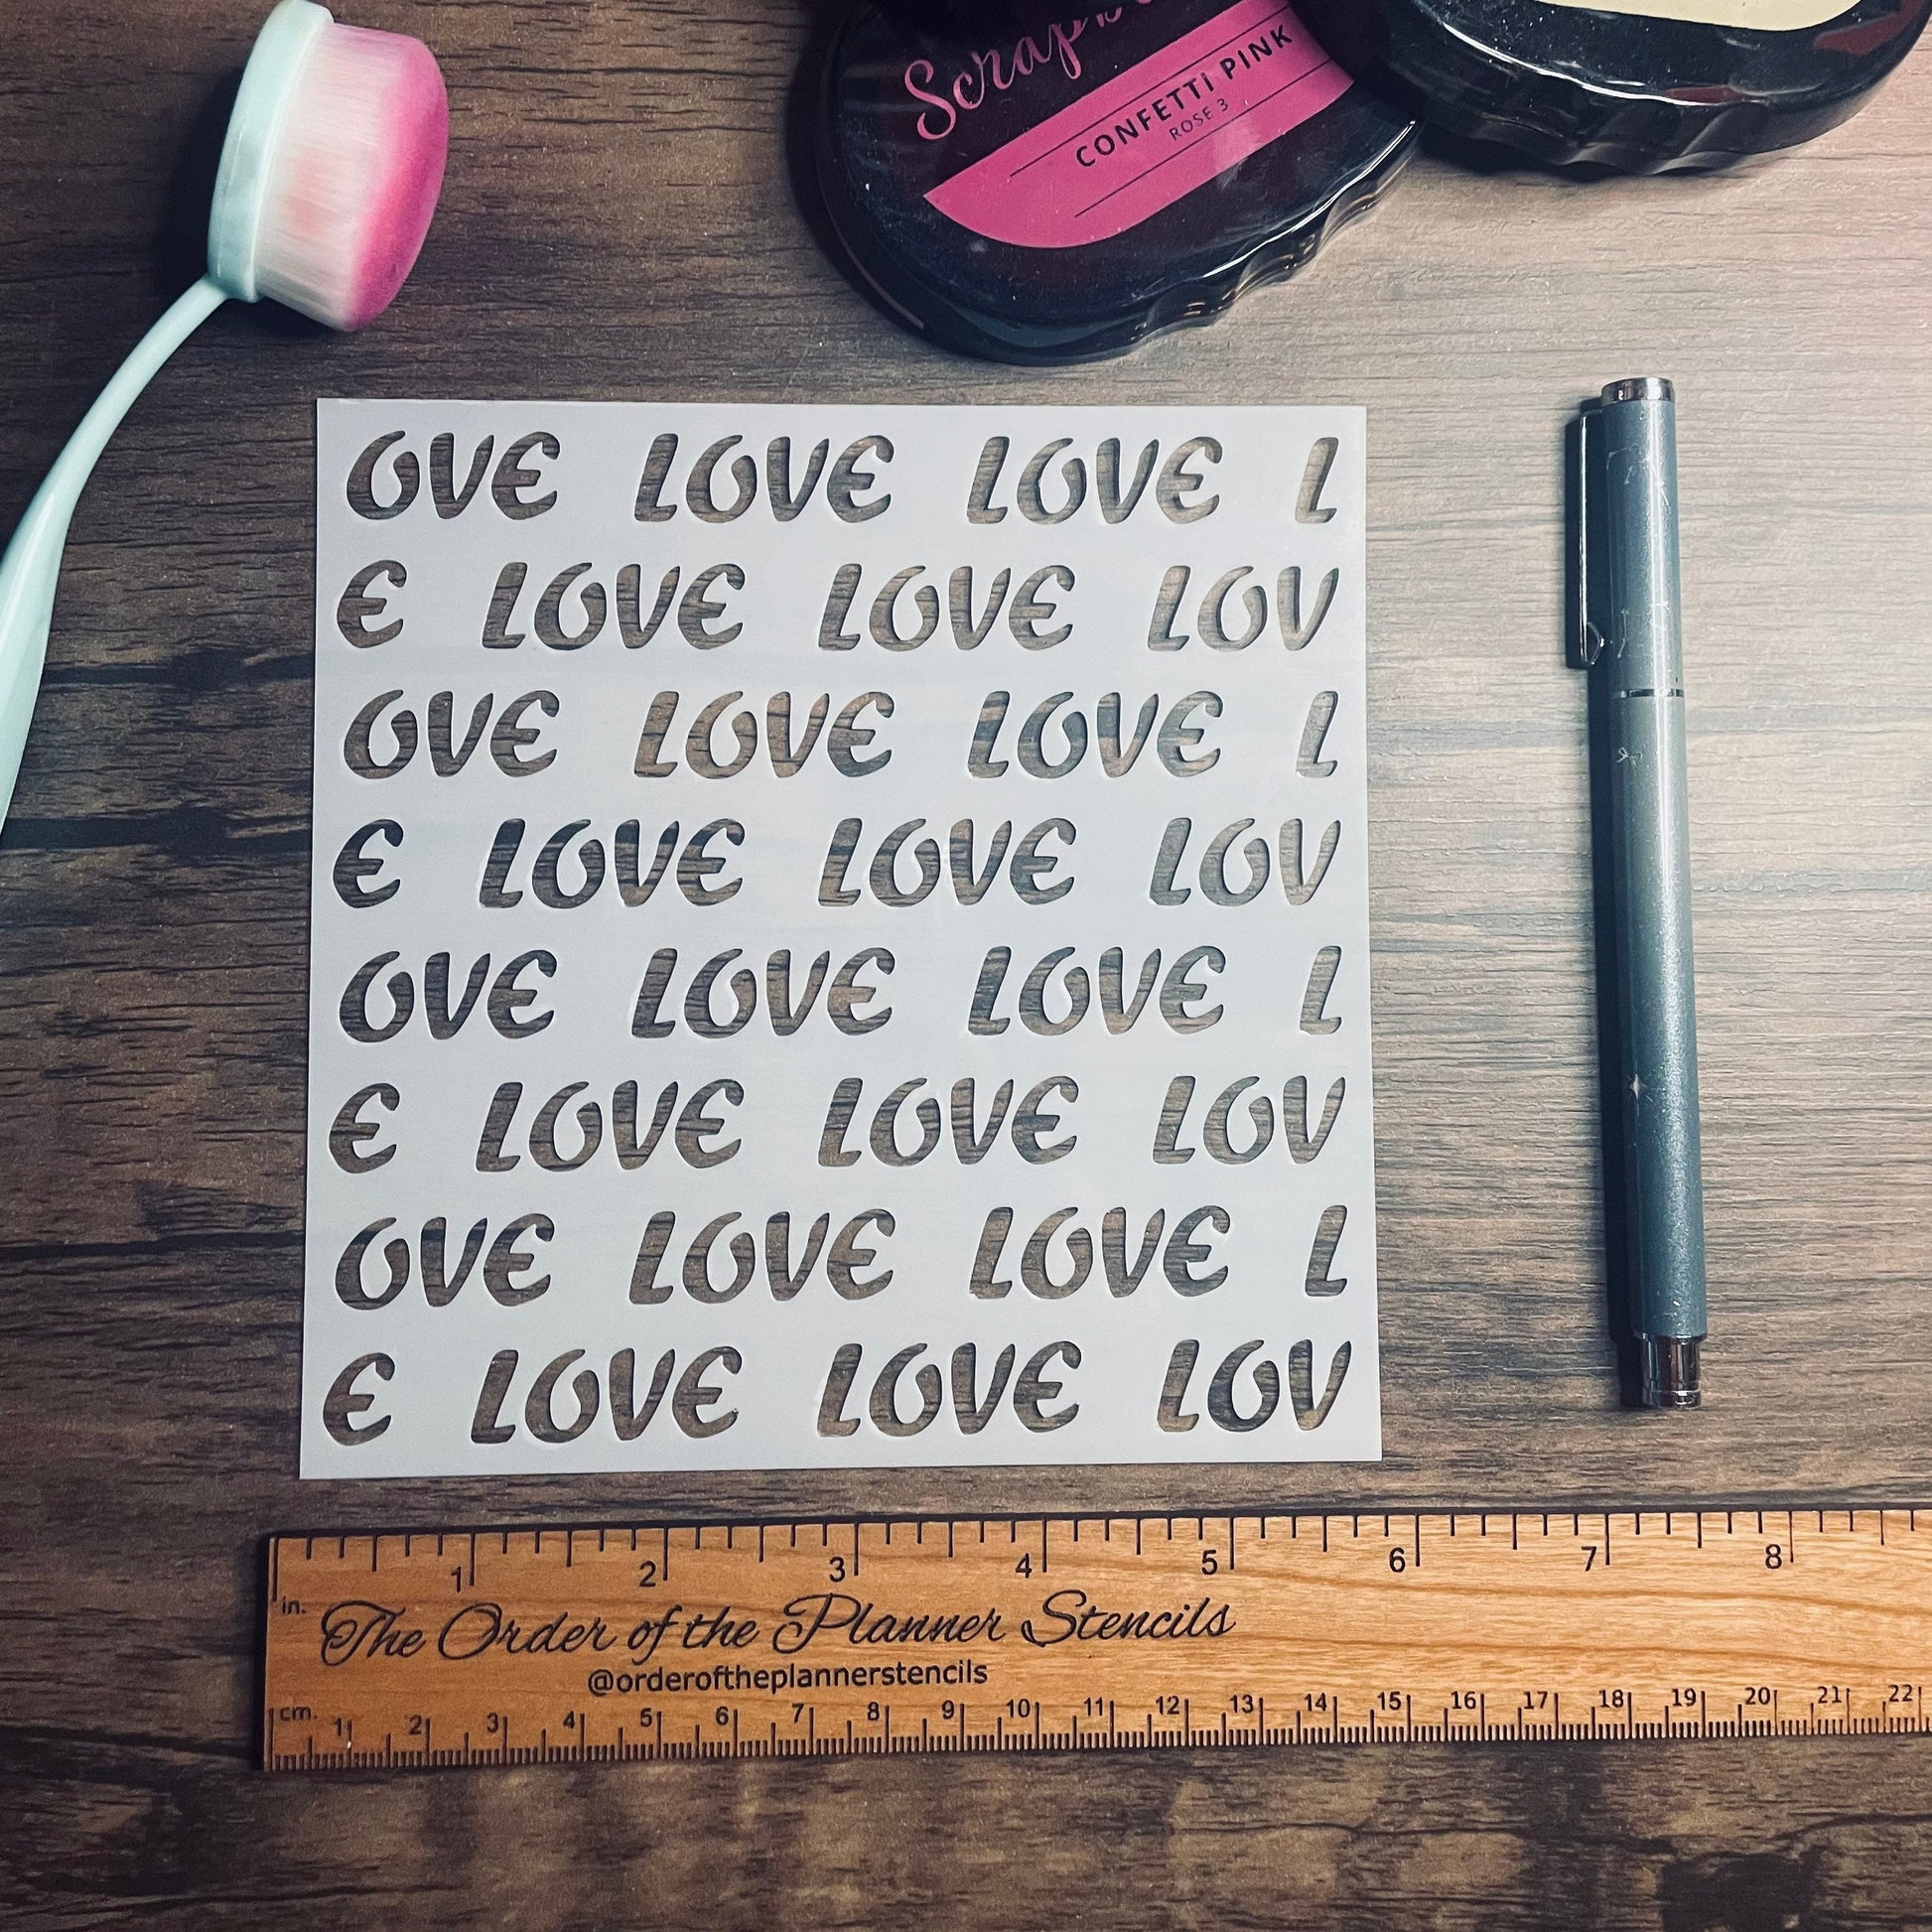 CONFETTi PINK
ROSE 3
OVE LOVE LOVE L
E LOVE LOVE LOV
OVE LOVE LOVE L
E LOVE LOVE LOV
OVE LOVE LOVE L
E LOVE LOVE LOV
OVE LOVE LOVE L
E LOVE LOVE LOV
1 2 3 4 5 6 7 8
in.
The Order of the Planner Stencils
@orderoftheplannerstencils
cm. 1 2 3 4 5 6 7 8 9 10 11 12 13 14 15 16 17 18 19 20 21 22